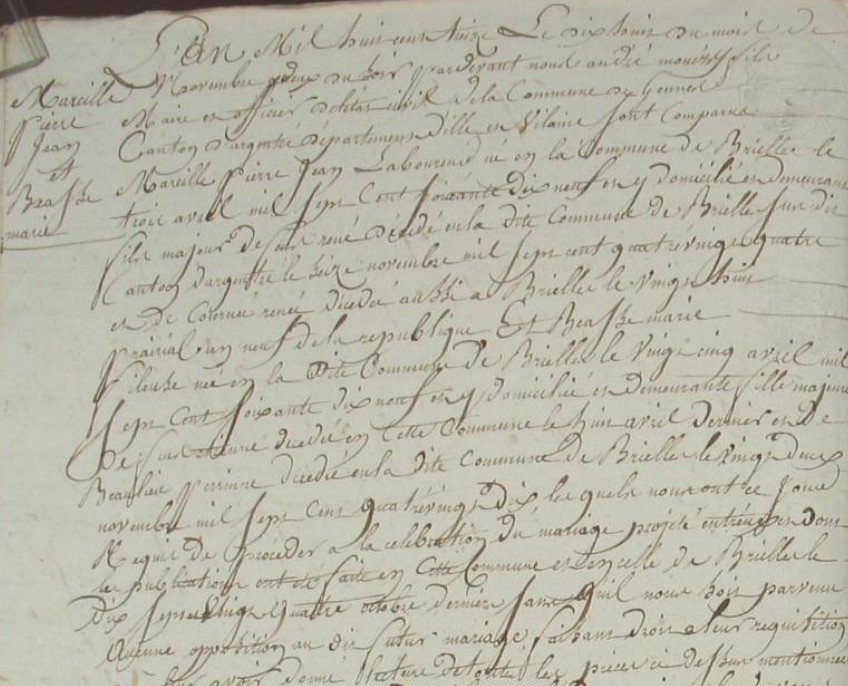 L'an Mil huit cent treize Le dix huit du mois de
Novembre deux du soir pardevant nous andré fils
Maire et officier de létat civil de la Commune de Gennes
Canton d'argentré département d'ille et Vilaine sont Comparus
Mareille Pierre Jean Laboureur né en la Commune de Brielles le
trois avril mil sept Cent soixante dix neuf en y domicilié et demeurant
fils majeur de feu rené décédé en la dite Commune de Brielles sus dit
Canton d'argentré le seize novembre mil sept cent quatrevingt quatre
et de renée décédée aussi a Brielles le vingt huit
prairial an neuf de la republique Et Beasse marie
fileuse née en la Dite Commune De Brielles le vingt cinq avril mil
sept Cent soixante dix neuf en y domiciliée et demeurante fille majeure
De feu etienne decedé en Cette Commune le huit avril dernier et De
Beaulieu perrinne décédée en la Dite Commune De Brielles le vingt deux
novembre mil sept Cent quatrevingt Dix les quels nous ont ce jour
Requis de procéder a la celebration du mariage projeté entreux et dont
les publications ont été faite en Cette Commune et en celle de Brielles le
Dix sept et vingt quatre octobre dernier sans quil nous soit parvenu
Aucune opposition au dit futur mariage faisant droit a leur requisition
avoir donné lecture de toutes les pièces ci dessus mentionnées
Mareille
Pierre
Jean
et
Beasse
marie